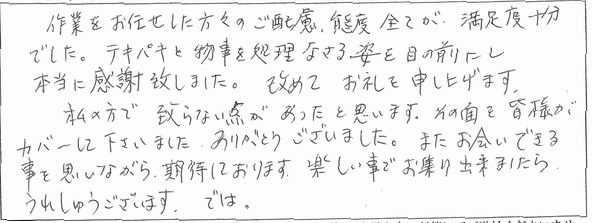 作業をお任せした方々のご配慮、態度全てが、満足度十分
でした。テキパキと物事を処理なさる姿を目の前にし
本当に感謝致しました。改めてお礼を申し上げます。
私の方で致らない点があったと思います。その面を皆様が
カバーして下さいました。ありがとうございました。またお会いできる
事を思いながら、期待しております。楽しい事でお集り出来ましたら
うれしゅうございます。では。